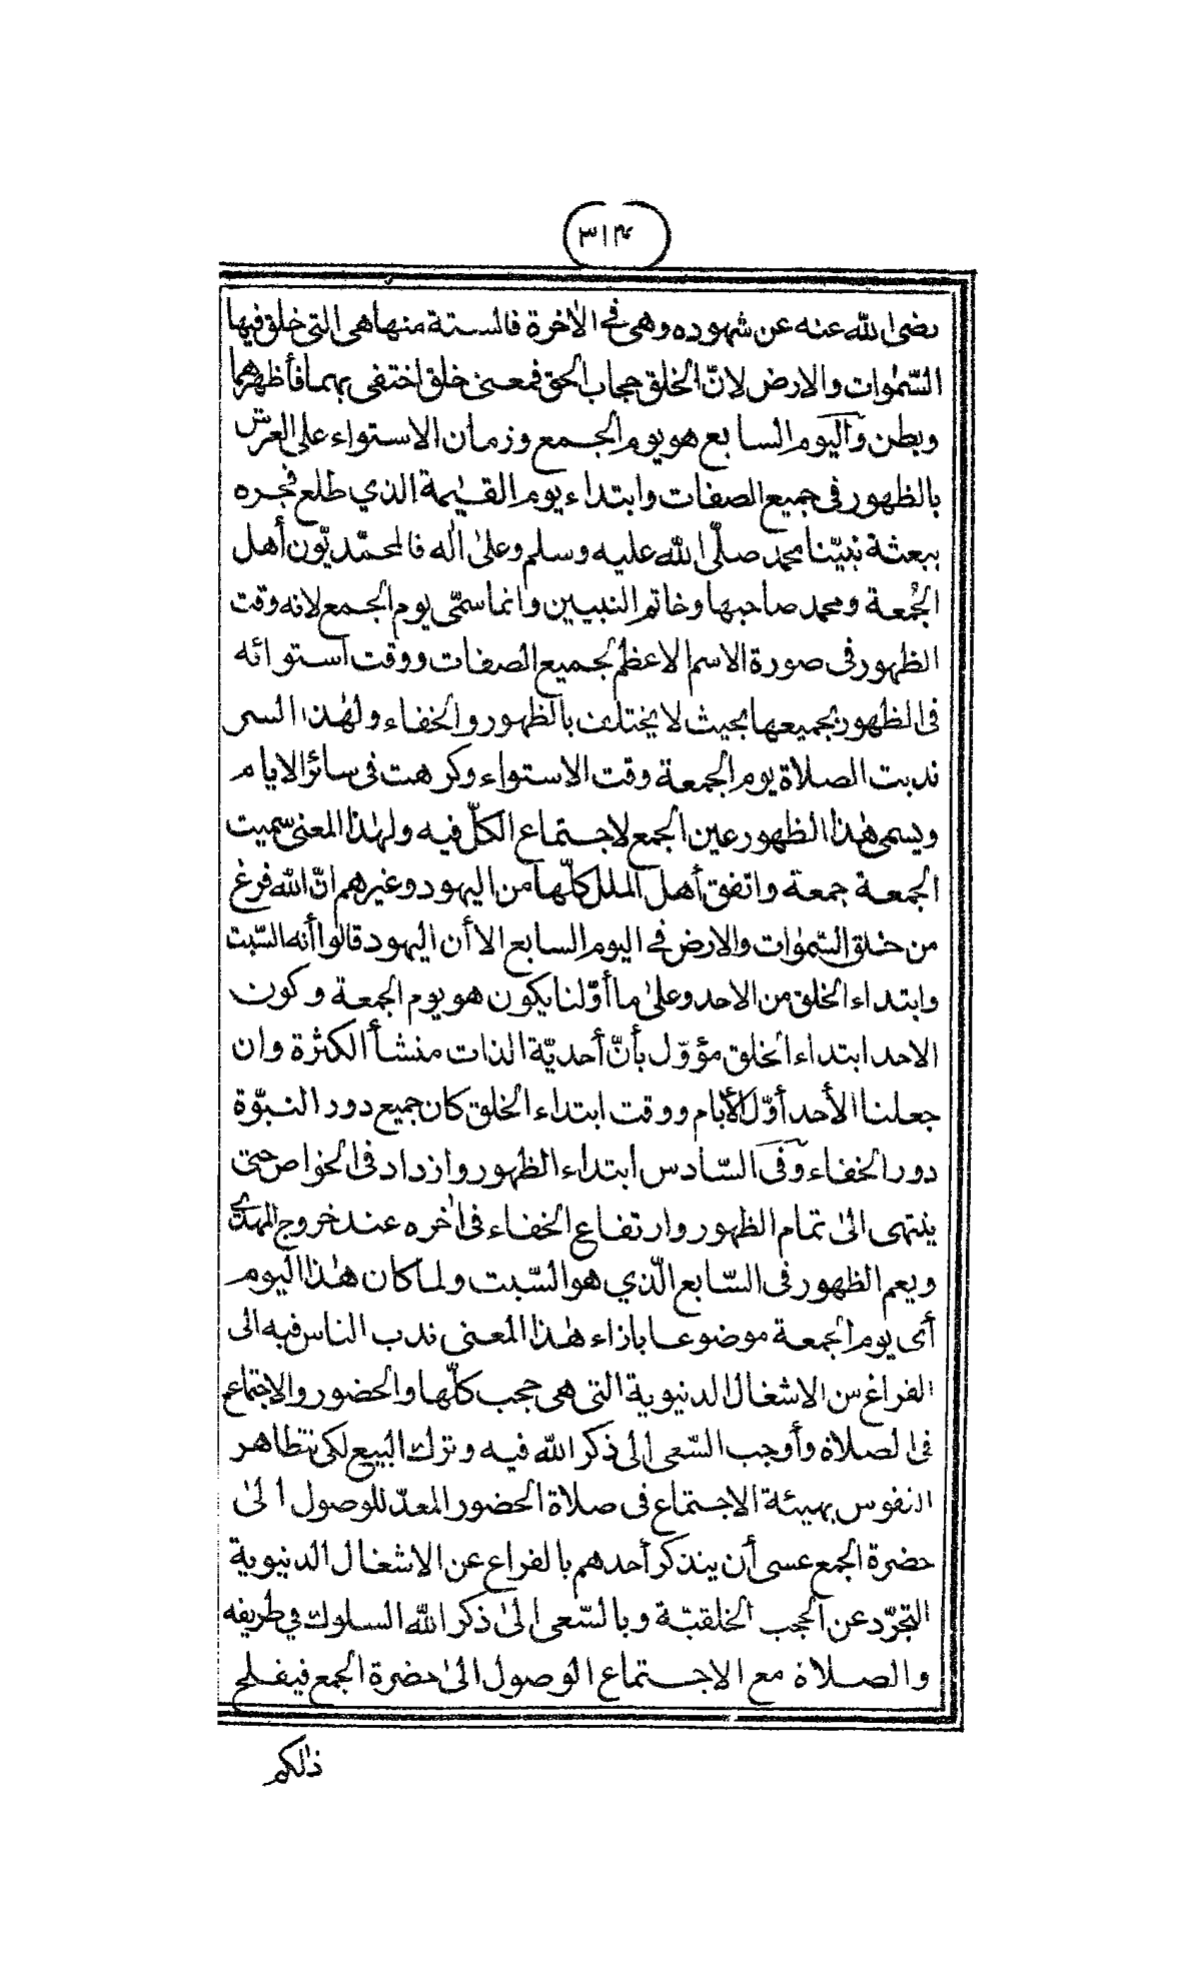 ٣١٤
رضي الله عنه عن شهوده وهي في الاٰخرة فالستة منها هي التي خلق فيها
السّمٰوات والارض لانّ الخلق حجاب الحق فمعنى خلق اختفى بهما فأظهرهما
وبطن واليوم السابع هو يوم الجمع وزمان الاستواء على العرش
بالظهور في جميع الصفات وابتداء يوم القيٰمة الذي طلع فجره
ببعثة نبيّنا محمد صلّى الله عليه وسلم وعلىٰ اٰله فالمحمّديّون أهل
الجُمعة ومحمد صاحبها وخاتم النبيين وانما سمّى يوم الجمع لانه وقت
الظهور في صورة الاسم الاعظم لجميع الصفات ووقت استوائه
في الظهور بجميعها بحيث لا يختلف بالظهور والخفاء ولهٰذا السر
ندبت الصلاة يوم الجمعة وقت الاستواء وكرهت في سائر الايام
ويسمى هٰذا الظهور عين الجمع لاجتماع الكلّ فيه ولهٰذا المعنى سميت
الجمعة جمعة واتفق أهل الملل كلّها من اليهود وغيرهم انّ الله فرغ
من خلق السّمٰوات والارض في اليوم السابع الا أن اليهود قالوا أنه السّبت
وابتداء الخلق من الاحد وعلىٰ ما أوّلنا يكون هو يوم الجمعة وكون
الاحد ابتداء الخلق مؤوّل بأنّ أحديّة الذات منشأ الكثرة وان
جعلنا الأحد أوّل الأيام ووقت ابتداء الخلق كان جميع دور النبوّة
دور الخفاء وفي السّادس ابتداء الظهور وازداد في الخواص حتى
ينتهى الىٰ تمام الظهور وارتفاع الخفاء في اٰخره عند خروج المهدي
ويعم الظهور في السّابع الّذي هو السّبت ولما كان هٰذا اليوم
أى يوم الجمعة موضوعا بازاء هٰذا المعنى ندب الناس فيه الى
الفراغ من الاشغال الدنيوية التى هى حجب كلّها والحضور والاجتماع
في الصلاة وأوجب السّعى الى ذكر الله فيه وترك البيع لكى تتظاهر
النفوس بهيئة الاجتماع في صلاة الحضور المعدّ للوصول الىٰ
حضرة الجمع عسى أن يتذكر أحدهم بالفراغ عن الاشغال الدنيوية
التجرّد عن الحجب الخلقيّة وبالسّعى الىٰ ذكر الله السلوك في طريقه
والصلاة مع الاجتماع الوصول الىٰ حضرة الجمع فيفلح
ذٰلكم